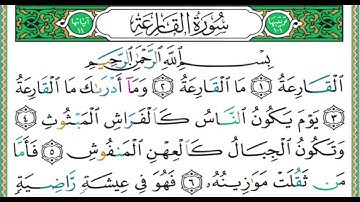 سُورَةُ القَارِعَةِ
بِسْمِ اللَّهِ الرَّحْمَٰنِ الرَّحِيمِ
الْقَارِعَةُ ﴿١﴾ مَا الْقَارِعَةُ ﴿٢﴾ وَمَا أَدْرَىٰكَ مَا الْقَارِعَةُ
﴿٣﴾ يَوْمَ يَكُونُ النَّاسُ كَالْفَرَاشِ الْمَبْثُوثِ ﴿٤﴾
وَتَكُونُ الْجِبَالُ كَالْعِهْنِ الْمَنْفُوشِ ﴿٥﴾ فَأَمَّا
مَن ثَقُلَتْ مَوَازِينُهُ ﴿٦﴾ فَهُوَ فِي عِيشَةٍ رَّاضِيَةٍ